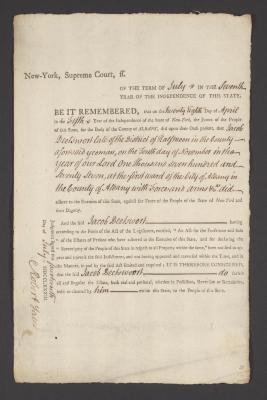 New-York, Supreme Court, ss.
OF THE TERM OF July IN THE Seventh
YEAR OF THE INDEPENDENCE OF THIS STATE;
BE IT REMEMBERED, that on the twenty Eighth Day of April
in the fifth Year of the Independence of the State of New-York, the Jurors of the People
of this State, for the Body of the County of ALBANY, did upon their Oath present, that Jacob
late of the District of Halfmoon in the County
aforesaid yeoman, on the tenth day of November in the
Year of our Lord One thousand seven hundred and
Seventy Seven, at the first ward of the city of Albany in
the County of Albany with force and arms &c. did
adhere to the Enemies of this State, against the Peace of the People of the State of New-York and
their Dignity.
And the said Jacob having
according to the Form of the Act of the Legislature, entitled, "An Act for the Forfeiture and Sale
"of the Estates of Persons who have adhered to the Enemies of this State, and for declaring the
"Sovereignty of the People of this State in respect to all Property within the same," been notified to
appear and traverse the said Indictment, and not having appeared and traversed within the Time, and in
the Manner, in and by the said Act limited and required; IT IS THEREFORE CONSIDERED,
that the said Jacob do forfeit
all and Regular the Estate, both real and personal, whether in Possession, Reversion or Remainder,
held or claimed by him within this State, to the People of this State.
Judgment signed
Day of July
Robert Yates